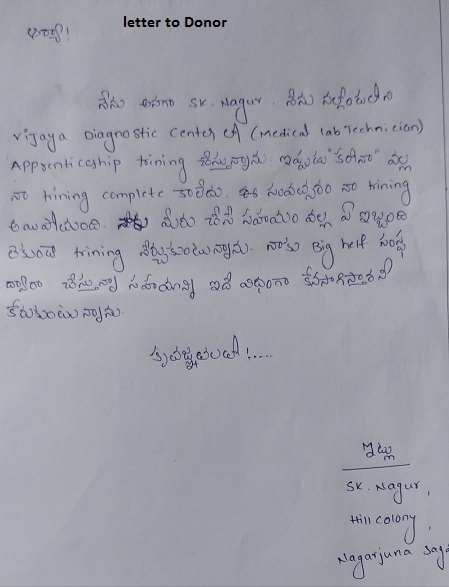 letter to Donor
ఆర్యా!
నేను అనగా SK. Nagur. నేను నల్గొండలోని
vijaya Diagnostic Center లో (Medical lab Technician)
Apprenticeship trining చేస్తున్నాను. ఇప్పుడు "కరోనా" వల్ల
నా trining complete కాలేదు. ఈ సంవత్సరం నా trining
అయిపోయింది. మీరు చేసే సహయం వల్ల ఏ ఇబ్బంది
లేకుండా trining నేర్చుకుంటున్నాను. నాకు Big help సంస్థ
ద్వారా చేస్తున్నా సహయాన్ని ఇదే విధంగా కొనసాగిస్తారని
కోరుకుంటున్నాను.
కృతజ్ఞతలతో!.....
ఇట్లు
SK. Nagur,
Hill colony,
Nagarjuna Saga